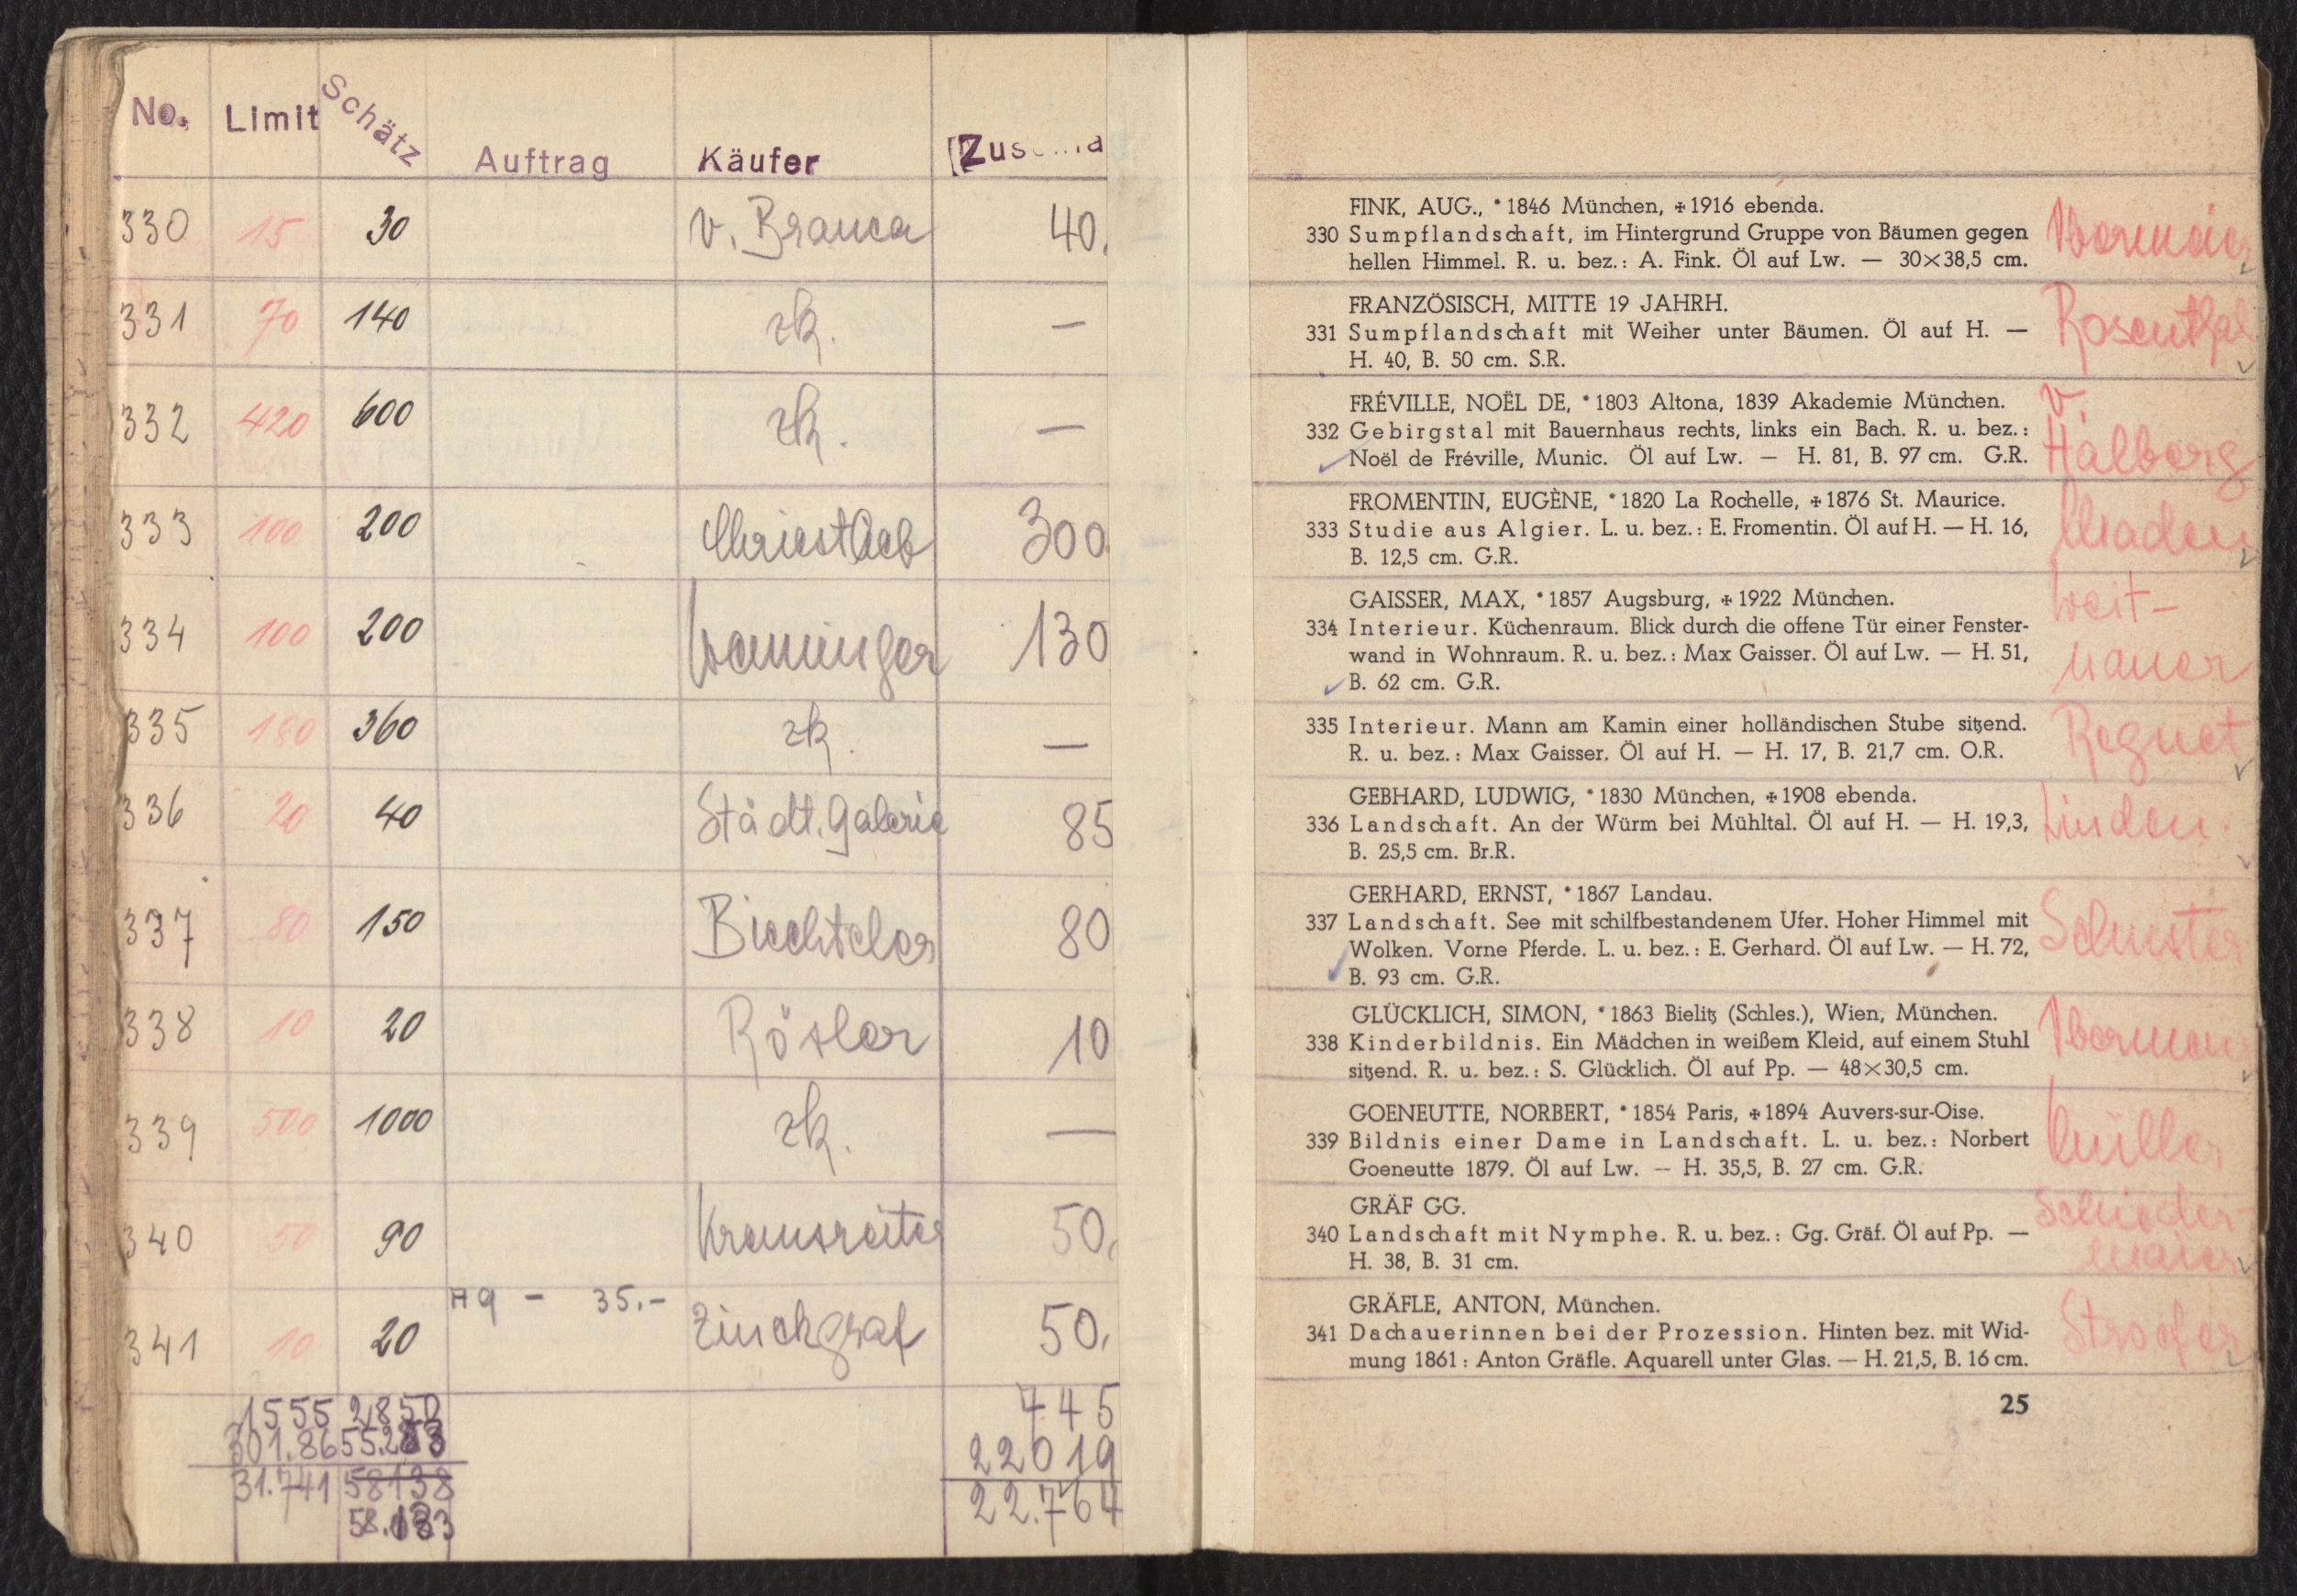 No. Limit Schätz Auftrag Käufer
330 15 30 v. Branca 40.
331 70 140 zk. —
332 420 600 zk. —
333 100 200 300
334 100 200 130
335 180 360 zk. —
336 20 40 Städt. Galerie 85
337 80 150 Biechteler 80
338 10 20 Rösler 10
339 500 1000 zk. —
340 50 90 50.
Hg — 35.-
341 10 20 Zinckgraf 50.
1555 2850 745
301.86 55.283 22019
31.741 58138 22.764
58.133
FINK, AUG., *1846 München, ✠1916 ebenda.
330 Sumpflandschaft, im Hintergrund Gruppe von Bäumen gegen
hellen Himmel. R. u. bez.: A. Fink. Öl auf Lw. — 30×38,5 cm.
FRANZÖSISCH, MITTE 19 JAHRH.
331 Sumpflandschaft mit Weiher unter Bäumen. Öl auf H. —
H. 40, B. 50 cm. S.R.
Rosenthal
FRÉVILLE, NOËL DE, *1803 Altona, 1839 Akademie München.
332 Gebirgstal mit Bauernhaus rechts, links ein Bach. R. u. bez.:
Noël de Fréville, Munic. Öl auf Lw. — H. 81, B. 97 cm. G.R.
v.
Halberg
FROMENTIN, EUGÈNE, *1820 La Rochelle, ✠1876 St. Maurice.
333 Studie aus Algier. L. u. bez.: E. Fromentin. Öl auf H. — H. 16,
B. 12,5 cm. G.R.
GAISSER, MAX, *1857 Augsburg, ✠1922 München.
334 Interieur. Küchenraum. Blick durch die offene Tür einer Fenster-
wand in Wohnraum. R. u. bez.: Max Gaisser. Öl auf Lw. — H. 51,
B. 62 cm. G.R.
335 Interieur. Mann am Kamin einer holländischen Stube sitzend.
R. u. bez.: Max Gaisser. Öl auf H. — H. 17, B. 21,7 cm. O.R.
Regnet
GEBHARD, LUDWIG, *1830 München, ✠1908 ebenda.
336 Landschaft. An der Würm bei Mühltal. Öl auf H. — H. 19,3,
B. 25,5 cm. Br.R.
Linden.
GERHARD, ERNST, *1867 Landau.
337 Landschaft. See mit schilfbestandenem Ufer. Hoher Himmel mit
Wolken. Vorne Pferde. L. u. bez.: E. Gerhard. Öl auf Lw. — H. 72,
B. 93 cm. G.R.
Schuster
GLÜCKLICH, SIMON, *1863 Bielitz (Schles.), Wien, München.
338 Kinderbildnis. Ein Mädchen in weißem Kleid, auf einem Stuhl
sitzend. R. u. bez.: S. Glücklich. Öl auf Pp. — 48×30,5 cm.
GOENEUTTE, NORBERT, *1854 Paris, ✠1894 Auvers-sur-Oise.
339 Bildnis einer Dame in Landschaft. L. u. bez.: Norbert
Goeneutte 1879. Öl auf Lw. — H. 35,5, B. 27 cm. G.R.
Müller
GRÄF GG.
340 Landschaft mit Nymphe. R. u. bez.: Gg. Gräf. Öl auf Pp. —
H. 38, B. 31 cm.
Schieder-
maier
GRÄFLE, ANTON, München.
341 Dachauerinnen bei der Prozession. Hinten bez. mit Wid-
mung 1861: Anton Gräfle. Aquarell unter Glas. — H. 21,5, B. 16 cm.
25